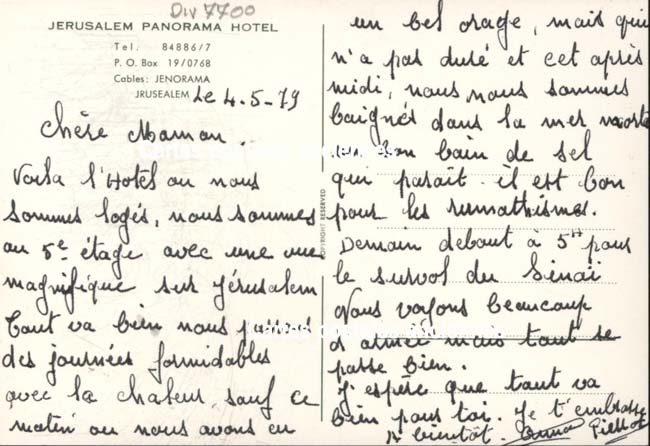 Div 7700
JERUSALEM PANORAMA HOTEL
Tel. 84886/7
P. O. Box 19/0768
Cables: JENORAMA
JRUSEALEM
Le 4.5.79
Chère Maman.
Voila l'Hotel ou nous
sommes logés, nous sommes
au 5e étage avec une vue
magnifique sur Jérusalem
Tout va bien nous faisons
des journées formidables
avec la chaleur sauf ce
matin ou nous avons eu
COPYRIGHT RESERVED
un bel orage, mais qui
n'a pas duré et cet après
midi, nous nous sommes
baignés dans la mer morte
un bon bain de sel
qui parait il est bon
pour les rumathismes.
Demain debout à 5H pour
le survol du Sinaï
Nous voyons beaucoup
d'armée mais tout se
passe bien.
J'espère que tout va
bien pour toi. Je t'embrasse
A bientôt.